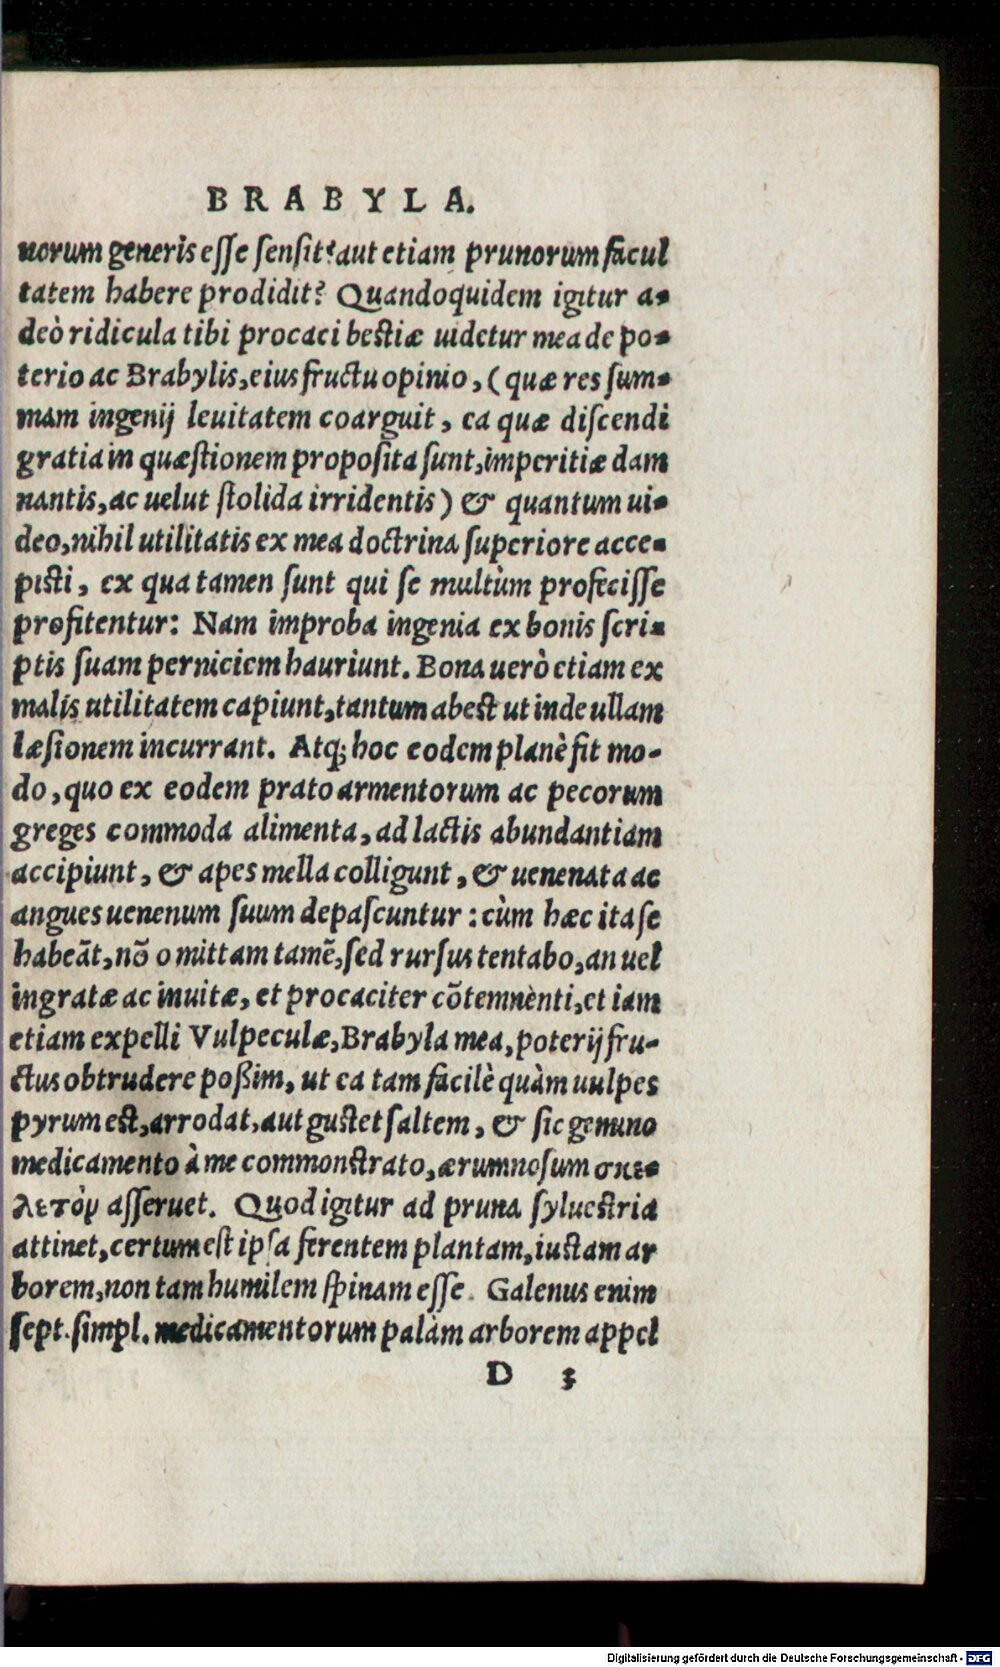 BRABYLA.
norum generis esse sensit? aut etiam prunorum facul
tatem habere prodidit? Quandoquidem igitur a-
deò ridicula tibi procaci bestiæ uidetur mea de po-
terio ac Brabylis, eius fructu opinio, (quæ res sum-
mam ingenij leuitatem coarguit, ea quæ discendi
gratia in quæstionem proposita sunt, imperitiæ dam
nantis, ac uelut stolida irridentis) & quantum ui-
deo, nihil utilitatis ex mea doctrina superiore acce-
pisti, ex qua tamen sunt qui se multùm profecisse
profitentur: Nam improba ingenia ex bonis scri-
ptis suam perniciem hauriunt. Bona uerò etiam ex
malis utilitatem capiunt, tantum abest ut inde ullam
læsionem incurrant. Atq; hoc eodem planè fit mo-
do, quo ex eodem prato armentorum ac pecorum
greges commoda alimenta, ad lactis abundantiam
accipiunt, & apes mella colligunt, & uenenata ac
angues uenenum suum depascuntur: cùm hæc ita se
habeãt, nõ omittam tamẽ, sed rursus tentabo, an uel
ingratæ ac inuitæ, et procaciter cõtemnènti, et iam
etiam expelli Vulpeculæ, Brabyla mea, poterij fru-
ctus obtrudere poßim, ut ea tam facilè quàm uulpes
pyrum est, arrodat, aut gustet saltem, & sic genuno
medicamento à me commonstrato, ærumnosum σκε-
λετὸν asseruet. Quod igitur ad pruna syluestria
attinet, certum est ipsa ferentem plantam, iustam ar
borem, non tam humilem spinam esse. Galenus enim
sept. simpl. medicamentorum palàm arborem appel
D 3
Digitalisierung gefördert durch die Deutsche Forschungsgemeinschaft - DFG